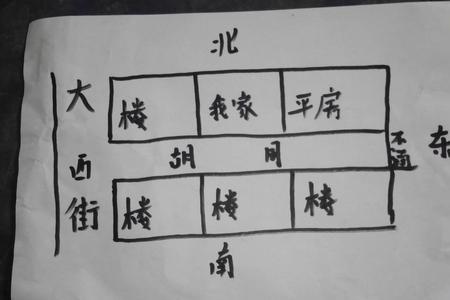 北
大西街
楼 我家 平房
胡同
不通
东
楼 楼 楼
南